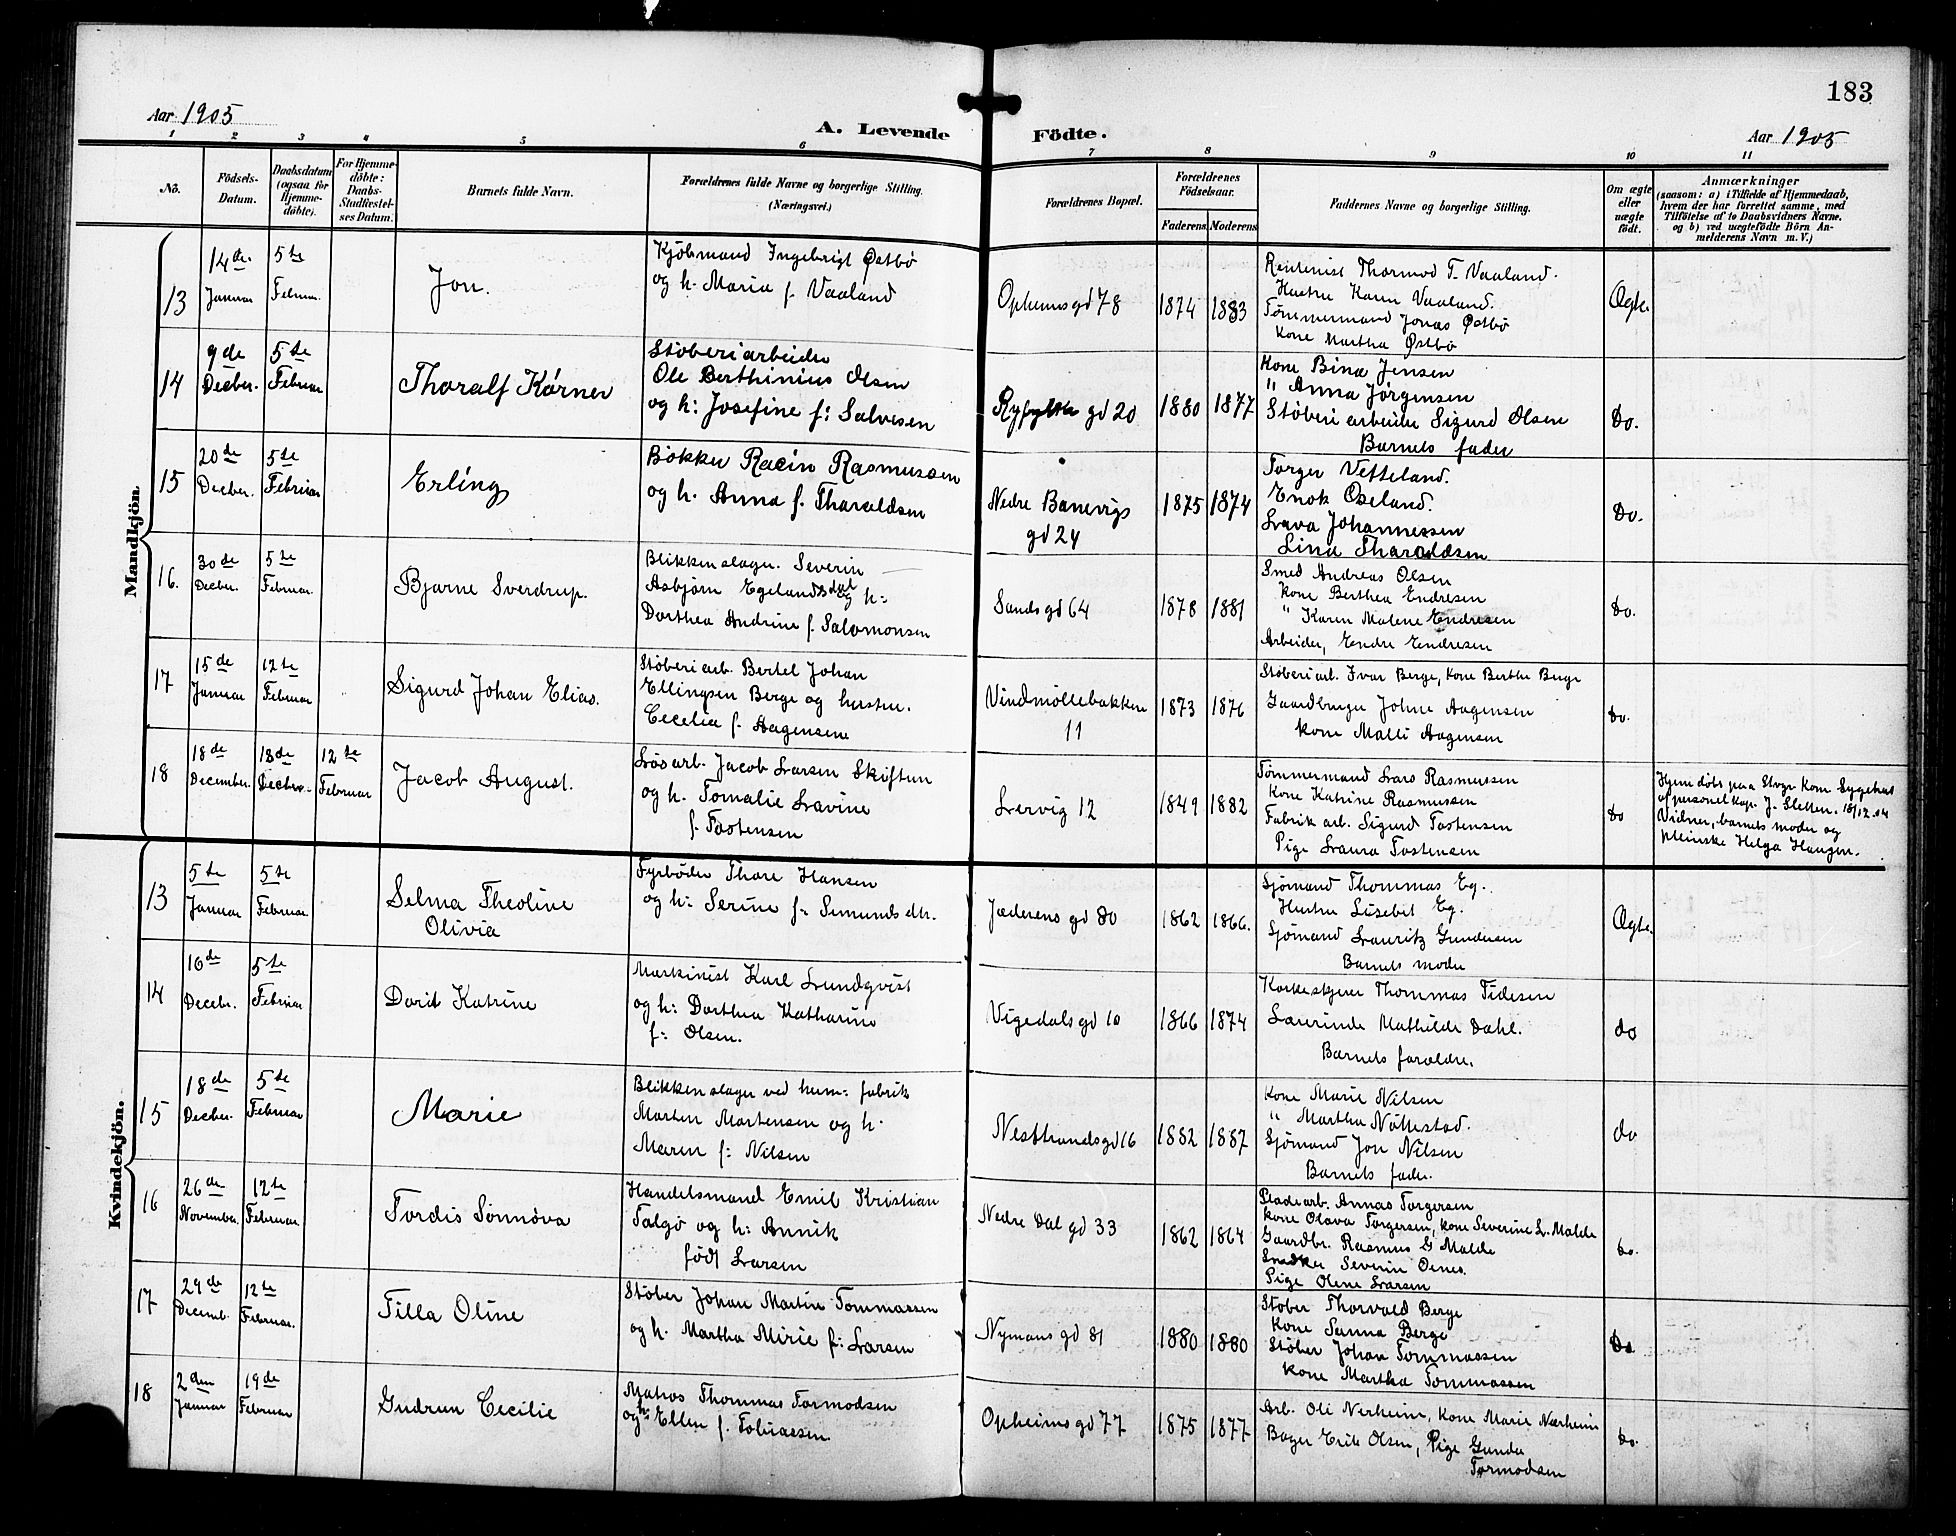 183
Aar 1905
A. Levende Födte.
Aar 1905
1 2 3 4 5 6 7 8 9 10 11
No.
Födsels-Datum.
Daabsdatum (ogsaa for Hjemme-döbte).
For Hjemme-döbte: Daabs-Stadfæstelses Datum.
Barnets fulde Navn.
Forældrenes fulde Navne og borgerlige Stilling. (Næringsvei.)
Forældrenes Bopæl.
Forældrenes Födselsaar.
Faderens Moderens
Faddernes Navne og borgerlige Stilling.
Om ægte eller uægte födt.
Anmærkninger
(saasom: a) i Tilfælde af Hjemmedaab, hvem der har forrettet samme, med Tilföielse af to Daabsvidners Navne, og b) ved uægtefödte Börn Anmelderens Navn m. V.)
Mandkjön.
13
14de Januar
5te Februar
Jon.
Kjöbmand Ingebrigt Østbö
og h. Maria f. Vaaland
Opheimsgd 78
1874 1883
Rentenist Thormod T. Vaaland.
Hustru Karen Vaaland.
Tømmermand Jonas Østbø
Kone Martha Østbø
Ægte.
14
9de Decber.
5te Februar
Thoralf Kørner
Støberiarbeider
Ole Berthinius Olsen
og h: Josefine f: Salvesen
Ryfylke gd 20
1880 1877
Kone Bina Jensen
" Anna Jørgensen
Støberiarbeider Sigurd Olsen
Barnets fader
Do.
15
20de Decber.
5te Februar
Erling
Bøkker Racin Rasmussen
og h. Anna f. Tharaldsen
Nedre Banevigs
gd 24
1875 1874
Torger Vetteland.
Enok Oseland.
Lava Johannessen
Lina Tharaldsen
Do.
16.
30de Decber.
5te Februar.
Bjarne Sverdrup.
Blikkenslager. Severin
Asbjørn Egelandsdal og h:
Dorthea Andrine f. Salomonsen
Sandsgd 64
1878 1881
Smed Andreas Olsen
Kone Berthea Endresen
" Karen Malene Endresen
Arbeider, Endre Endresen
Do.
17
15de Januar
12te Februar
Sigurd Johan Elias.
Støberiarb. Bertel Johan
Ellingsen Berge og hustru.
Cecelia f: Aagensen
Vindmøllebakken
11
1873 1876
Støberiarb. Ivar Berge, Kone Berthe Berge
Gaardbruger Johne Aagensen
Kone Malli Aagensen
Do.
18
18de December.
18de Decber.
12te Februar
Jacob August.
Løsarb. Jacob Larsen Skiftun
og h. Tomalie Lavine
f. Tostensen
Lervig 12
1849 1882
Tømmermand Lars Rasmussen
Kone Katrine Rasmussen
Fabrikarb. Sigurd Tostensen
Pige Laura Tostensen
Do
Hjemdøbt paa Stvgr Kom Sygehus
af personelkap. J. Sletten. 18/12.04
Vidner, barnets moder og
pleierske Helga Haugen.
Kvindekjön.
13
5te Januar
5te Februar
Selma Theoline
Olivia
Fyrbøder Thore Hansen
og h: Serine f: Simundsdtr.
Jæderens gd 80
1862 1866.
Sjömand Thommas Eg.
Hustru Lisebet Eg.
Sjömand Lauritz Gundersen
Barnets moder
Ægte.
14
16de Decebr.
5te Februar
Dorit Katrine
Maskinist Karl Lundqvist
og h: Dorthea Katharine
f: Olsen.
Vigedalsgd 10
1866 1874
Korkeskjærer Thommas Tidesen
Laurinde Mathilde Dahl.
Barnets forældre.
do
15
18de Decber.
5te Februar
Marie
Blikkenslager ved herm: fabrik
Morten Mortensen og h.
Maren f: Nilsen
Nesstrandsgd 16
1882 1887
Kone Marie Nilsen
" Martha Nöttestad.
Sjömand Jon Nilsen
Barnets fader.
do
16
26de November
12te Februar
Tordis Sönnöva
Handelsmand Emil Kristian
Talgö og h: Annik
född Larsen
Nedre Dal gd 33
1862 1864
Pladearb. Annas Torgersen
Kone Olava Torgersen, kone Severine L. Malde
Gaardbr. Rasmus G Malde
Snedker Severin Oenes.
Pige Olene Larsen
do.
17
29de Decemb.
12te Februar.
Tilla Oline
Støber Johan Martin Tommassen
og h. Martha Mirie f: Larsen
Nymans gd 81
1880 1880
Støber Thorvald Berge
Kone Sanna Berge
Støber Johan Tommassen
Kone Martha Tommassen
Do
18
2den Januar
19de Februar
Gudrun Cecilie
Matros Thommas Tormodsen
og h: Ellen f. Tobiassen
Opheimsgd 77
1875 1877
Arb. Oli Nerheim, Kone Marie Nærheim
Bager Erik Olsen, Pige Gunda
Tormodsen
do.